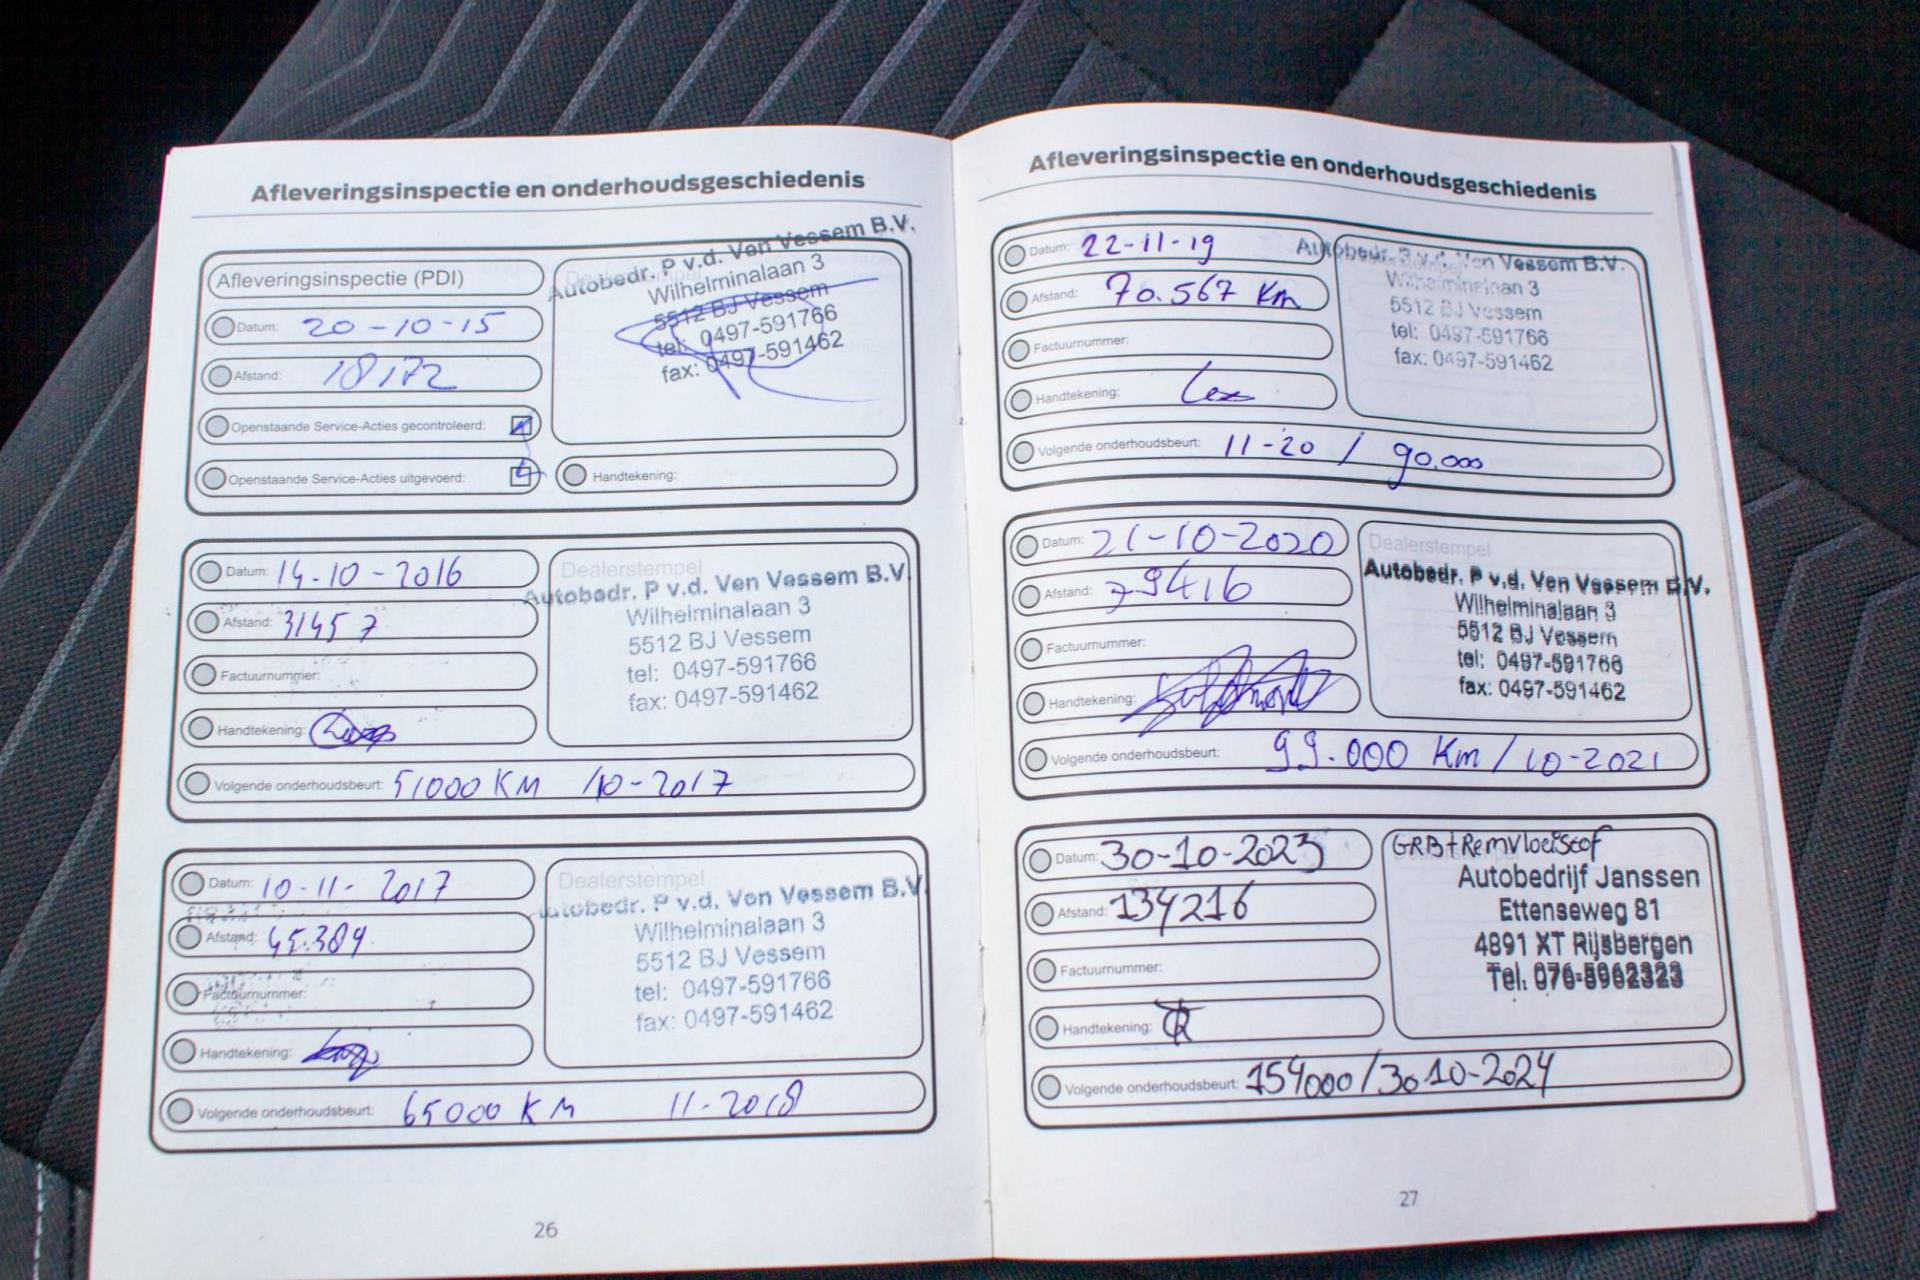 Afleveringsinspectie en onderhoudsgeschiedenis
Afleveringsinspectie (PDI)
Datum: 20-10-15
Afstand: 18172
Openstaande Service-Acties gecontroleerd:
Openstaande Service-Acties uitgevoerd:
Autobedr. P v.d. Ven Vessem B.V.
Wilhelminalaan 3
5512 BJ Vessem
tel: 0497-591766
fax: 0497-591462
Handtekening:
Datum: 14-10-2016
Afstand: 31457
Factuurnummer:
Handtekening:
Dealerstempel
Autobedr. P v.d. Ven Vessem B.V.
Wilhelminalaan 3
5512 BJ Vessem
tel: 0497-591766
fax: 0497-591462
Volgende onderhoudsbeurt: 51000 KM /10-2017
Datum: 10-11-2017
Afstand: 45.389
Factuurnummer:
Handtekening:
Dealerstempel
Autobedr. P v.d. Ven Vessem B.V.
Wilhelminalaan 3
5512 BJ Vessem
tel: 0497-591766
fax: 0497-591462
Volgende onderhoudsbeurt: 65000 KM 11-2018
26
Afleveringsinspectie en onderhoudsgeschiedenis
Datum: 22-11-19
Afstand: 70.567 Km
Factuurnummer:
Handtekening:
Autobedr. P v.d. Ven Vessem B.V.
Wilhelminalaan 3
5512 BJ Vessem
tel: 0497-591766
fax: 0497-591462
Volgende onderhoudsbeurt: 11-20 / 90.000
Datum: 21-10-2020
Afstand: 79416
Factuurnummer:
Handtekening:
Dealerstempel
Autobedr. P v.d. Ven Vessem B.V.
Wilhelminalaan 3
5512 BJ Vessem
tel: 0497-591766
fax: 0497-591462
Volgende onderhoudsbeurt: 99.000 Km / 10-2021
Datum: 30-10-2023
Afstand: 134216
Factuurnummer:
Handtekening:
GRB+Remvloeistof
Autobedrijf Janssen
Ettenseweg 81
4891 XT Rijsbergen
Tel. 076-5962323
Volgende onderhoudsbeurt: 154000/30-10-2024
27